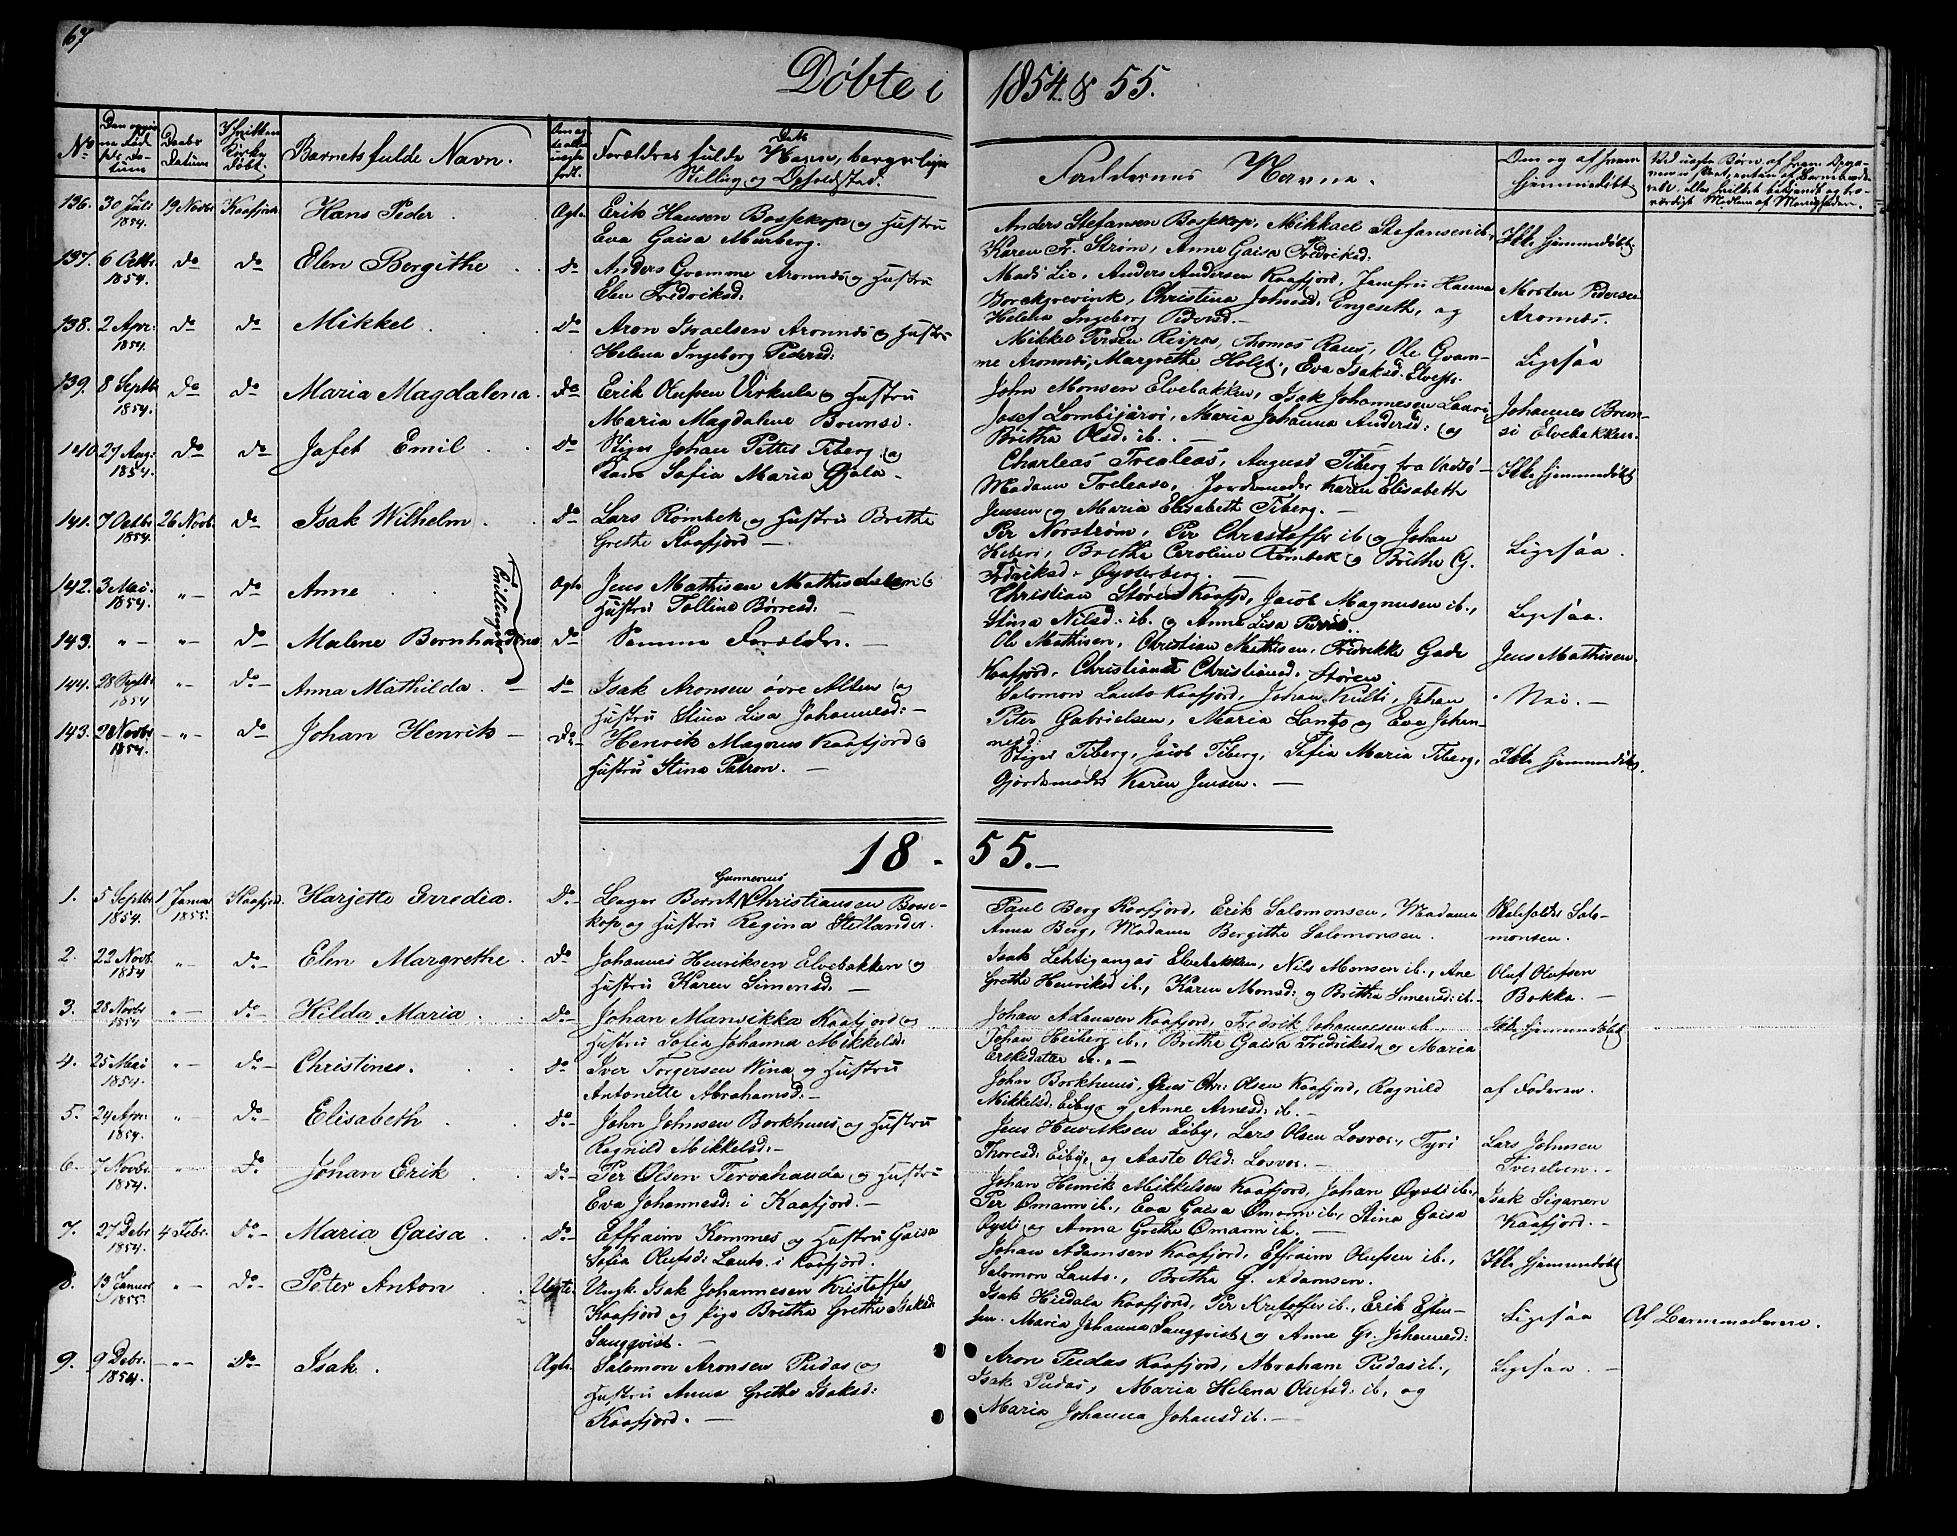 67
Døbte i 1854 & 55.
No
Barnets fulde Navn.
Forældres fulde Navne, borgerlige
Stilling og Opholdsted.
Faddernes Navne.
136. 30 Juli 1854. 19 Novbr Kaafjord Hans Peder Ægte
Erik Hansen Bossekop og Hustru
Eva Gaisa Murberg.
Anders Stefansen Bossekop, Mikkael Stefansen ib.,
Karen Fr. Strøm, Anne Gaisa Fredriksd:
Ikke hjemmedøbt
137. 6 Octbr. 1854. do do Elen Bergithe do
Anders Gvamme Aronnæs og Hustru
Elen Fredriksd:
Mads Lie, Anders Andersen Kaafjord, Jomfru Hanna
Borchgrevink, Christina Johnsd: Engeseth, og
Helena Ingeborg Pedersd. —
Morten Pedersen
Aronnæs.
138. 2 Apr: 1854. do do Mikkel Do
Aron Israelsen Aronnæs og Hustru
Helena Ingeborg Pedersd:
Mikkel Persen Reipas, Thomas Raus, Ole Gvam-
me Aronnæs, Margrethe Holst, Eva Isaksd: Elvestr.
Ligesaa
139. 8 Septbr 1854. do do Maria Magdalena Do
Erik Olufsen Virkula og Hustru
Maria Magdalene Brunsi.
John Monsen Elvebakken, Isak Johannesen Lauri
Josef Lombijärvi, Maria Johanna Andersd: og
Britha Olsd: ib. —
Johannes Brun-
si Elvebakken.
140. 27 Aug: 1854. do do Jafet Emil Do
Stiger Johan Petter Tiberg og
Kone Sofia Maria Ojala -
Charleas Trealeas, August Tiberg fra Vadsø -
Madam Trelease, Jordemoder Karen Elisabeth
Jensen og Maria Elisabeth Tiberg. —
Ikke hjemmedøbt
141. 7 Octbr 1854. 26 Novb. do Isak Wilhelm do
Lars Rømbek og Hustru Brithe
Grethe Kaafjord —
Per Norstrøm, Per Christoffer ib og Johan
Heberi, Brithe Caroline Rømbek og Brithe G.
Fredriksd: Øysterberg. —
Ligesaa.
142. 3 Mai 1854. „ — do Anne Ægte
Tvillinger
Jens Mathisen Mathisdalen og
Hustru Folline Børresd: —
Christian Støren Kaafjd, Jacob Magnusen ib.,
Stina Nilsd: ib. og Anne Lisa
Ligesaa.
143. „ — „ — do Malene Bernhardine do
Samme Forældre. —
Ole Mathisen, Christian Mathisen, Fredrikke Gade
Kaafjord, Christiane Christiansd. Støren
Jens Mathisen.
144. 28 Septbr 1854 „ — do — Anna Mathilda. — Do
Isak Aronsen øvre Alten og
Hustru Stina Lisa Johannesd: —
Salomon Lauto Kaafjord, Johan Kulti, Johan
Peter Gabrielsen, Maria Lauto og Eva Johan-
nesd:
Nei. —
143. 28 Novbr 1854. — „ — do Johan Henrik — Do —
Henrik Magnus Kaafjord og
Hustru Stina Petron. —
Stiger Tiberg, Jacob Tiberg, Sofia Maria Tiberg,
Gjordemoder Karen Jensen. —
Ikke hjemmedøbt.
18 - 55. —
1. 5 Septbr 1854. 1 Januar 1855. Kaafjord. Harjette Erredia. Do —
Gunnerius
Lager Bernt Christiansen Bosse-
kop og Hustru Regina Heilander.
Paul Berg Kaafjord, Erik Salomonsen, Madam
Anna Berg, Madam Bergithe Salomonsen.
Salo-
monsen.
2. 29 Novb. 1854 „ — do — Elen Margrethe Do
Johannes Henriksen Elvebakken og
Hustru Karen Simensd. —
Isak Lehtigangas Elvebakken, Nils Monsen ib., Ane
Grethe Henriksd ib., Karen Monsd: og Britha Simensd: ib. —
Oluf Olufsen
Bakka. —
3. 28 Novbr 1854 „ — do — Hilda Maria Do —
Johan Manvikka Kaafjord og
Hustru Sofia Johanna Mikkelsd:
Johan Adamsen Kaafjord, Fredrik Johannesen ib.
Johan Heiberg ib., Brithe Gaisa Fredriksd. og Maria
Eriksdatter ib. —
Ikke hjemmedøbt
4. 25 Mai 1854. „ — do — Christine. Do
Iver Torgersen Vina og Hustru
Antonette Abrahamsd. —
John Borkhuus, Jens Chr: Olsen Kaafjord, Ragnild
Mikkelsd. Eiby og Anne Arnesd: ib. —
af Faderen.
5. 24 Apr: 1854. „ — do — Elisabeth Do —
John Johnsen Borkhuus og Hustru
Ragnild Mikkelsd: —
Jens Henriksen Eiby, Lars Olsen Losvar, Tyri
Thoresd: Eiby, og Aaste Olsd: Losvar. —
Lars Johnsen
Tverelven. —
6 — 7 Novbr. 1854. „ — do. Johan Erik Do —
Per Olsen Tervahauda og Hustru
Eva Johannesd: i Kaafjord. —
Johan Henrik Mikkelsen Kaafjord, Johan Øysti ib.,
Per Omann ib., Eva Gaisa Omann ib., Stina Gaisa
Øysti og Anna Grethe Omann ib. —
Isak Siganen
Kaafjord. —
7. 27 Debr 1854. 4 Febr. Do — Maria Gaisa Do —
Effraim Kemmes og Hustru Gaisa
Sofia Olufsd: Lauto i Kaafjord.
Johan Adamsen Kaafjord, Effraim Olufsen ib.,
Salomon Lauto, Britha G. Adamsen.
Ikke hjemmedøbt
8. 13 Januar 1855. „ — Do — Peter Anton Uægte.
Ungk. Isak Johannesen Kristoffer
Kaafjord og pige Britha Grethe Isaksd
Sangqvist. —
Isak Hiedala Kaafjord, Per Kristoffer ib., Erik Esten-
sen. Maria Johanna Sangqvist, og Anne Gr. Johannesd:
Ligesaa
Af Barnemoderen.
9. 9 Debr. 1854. — „ — Do — Isak. Ægte.
Salomon Aronsen Pudas og
Hustru Anna Grethe Isaksd:
Kaafjord. —
Aron Pudas Kaafjord, Abraham Pudas ib.,
Isak Pudas, Maria Helena Olufsd: ib, og
Maria Johanna Johansd ib. —
Ligesaa. —